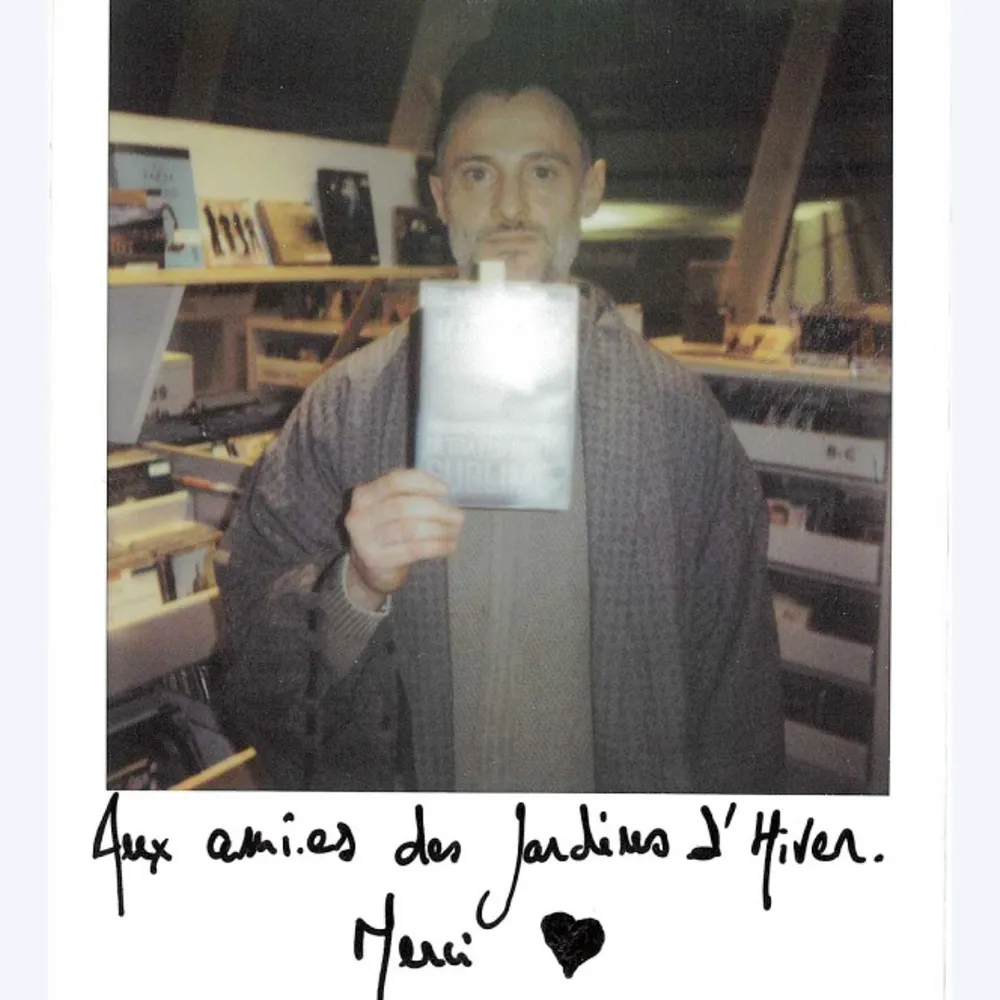 B-C
SUBLIME
Aux ami.es des Jardins d'Hiver.
Merci